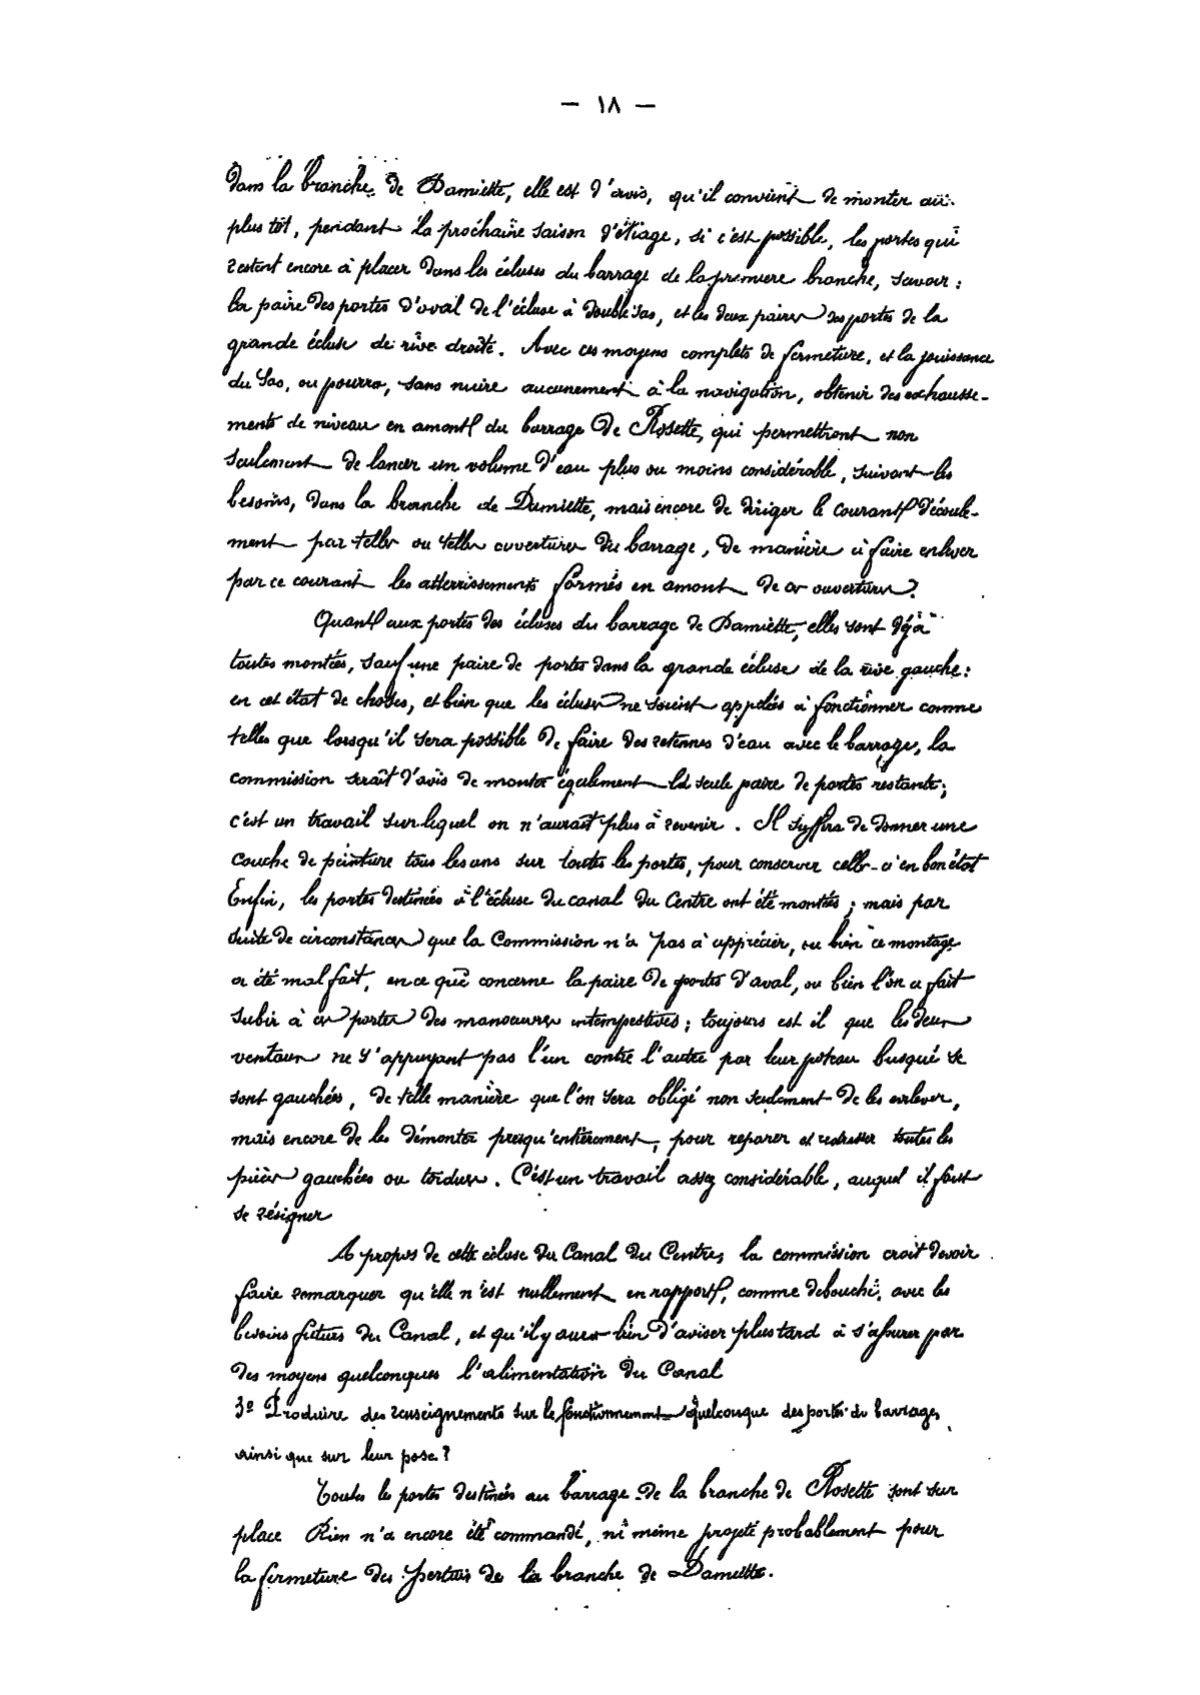 — ١٨ —
dans la branche de Damiette, elle est d'avis, qu'il convient de monter au
plus tôt, pendant la prochaine saison d'étiage, si c'est possible, les portes qui
restent encore à placer dans les écluses du barrage de la premiere branche, savoir :
la paire des portes d'aval de l'écluse à double sas, et les deux paires des portes de la
grande écluse de rive droite. Avec ces moyens complets de fermeture, et la jouissance
du Sas, on pourra, sans nuire aucunement à la navigation, obtenir des exhausse-
ments de niveau en amont du barrage de Rosette, qui permettront non
seulement de lancer un volume d'eau plus ou moins considérable, suivant les
besoins, dans la branche de Damiette, mais encore de diriger le courant d'écoule-
ment par telles ou telles ouvertures du barrage, de manière à faire enlever
par ce courant les atterrissements formés en amont de ces ouvertures.
Quant aux portes des écluses du barrage de Damiette, elles sont déjà
toutes montées, sauf une paire de portes dans la grande écluse de la rive gauche :
en cet état de choses, et bien que les écluses ne soient appelées à fonctionner comme
telles que lorsqu'il sera possible de faire des retenues d'eau avec le barrage, la
commission serait d'avis de monter également la seule paire de portes restante ;
c'est un travail sur lequel on n'aurait plus à revenir. Il suffira de donner une
couche de peinture tous les ans sur toutes les portes, pour conserver celles-ci en bon état
Enfin, les portes destinées à l'écluse du canal du Centre ont été montées ; mais par
suite de circonstances que la Commission n'a pas à apprécier, ou bien ce montage
a été mal fait, en ce qui concerne la paire de portes d'aval, ou bien l'on a fait
subir à ces portes des manoeuvres intempestives ; toujours est il que les deux
ventaux ne s'appuyant pas l'un contre l'autre par leur poteau busqué se
sont gauchées, de telle manière que l'on sera obligé non seulement de les enlever,
mais encore de les démonter presqu'entièrement, pour reparer et redresser toutes les
pièces gauchées ou tordues. C'est un travail assez considérable, auquel il faut
se résigner
A propos de cette écluse du Canal du Centre, la commission croit devoir
faire remarquer qu'elle n'est nullement en rapport, comme debouché, avec les
besoins futurs du Canal, et qu'il y aura lieu d'aviser plus tard à s'assurer par
des moyens quelconques l'alimentation du Canal
3º Produire des renseignements sur le fonctionnement quelconque des portes du barrage,
ainsi que sur leur pose ?
Toutes les portes destinées au barrage de la branche de Rosette sont sur
place Rien n'a encore été commandé, ni même projeté probablement pour
la fermeture des pertuis de la branche de Damiette.